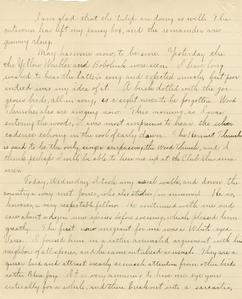 I am glad that the tulips are doing so well. The
outworn has left my pansy box, and the remainder are
growing along.
May has come now, to be sure. Yesterday the
the Yellow Warbler and Bobolink were seen. I have long
wished to hear the latter's song and expected much, but for
indeed was my idea of it. A field dotted with the gor-
geous birds, all in song, is a sight never to be forgotten. Wood
Thrushes also are singing now. This morning, as I was
entering the woods, it was most pleasant to hear the silver
cadence echoing in the cool of early dawn. The Hermit Thrush
is said to be the only singer surpassing the Wood Thrush, and I
think perhaps I will be able to hear one up at the Club this sum-
mer.
Today, Wednesday, I took my usual walk, and down the
country a way met Jones, who also studies
however, a very respectable fellow. He continued with me and
saw about a dozen new species before evening, which pleased him
greatly. The first new migrant for me was a White-eyed
Vireo. I found him in a rather animated argument with his
neighbors of all species, and he came out ahead as usual. They are a
queer bird and attract nearly as much attention from other birds
as the Blue Jay. It is very amusing to have one eye you
critically for a while, and then break out into a sarcastic,